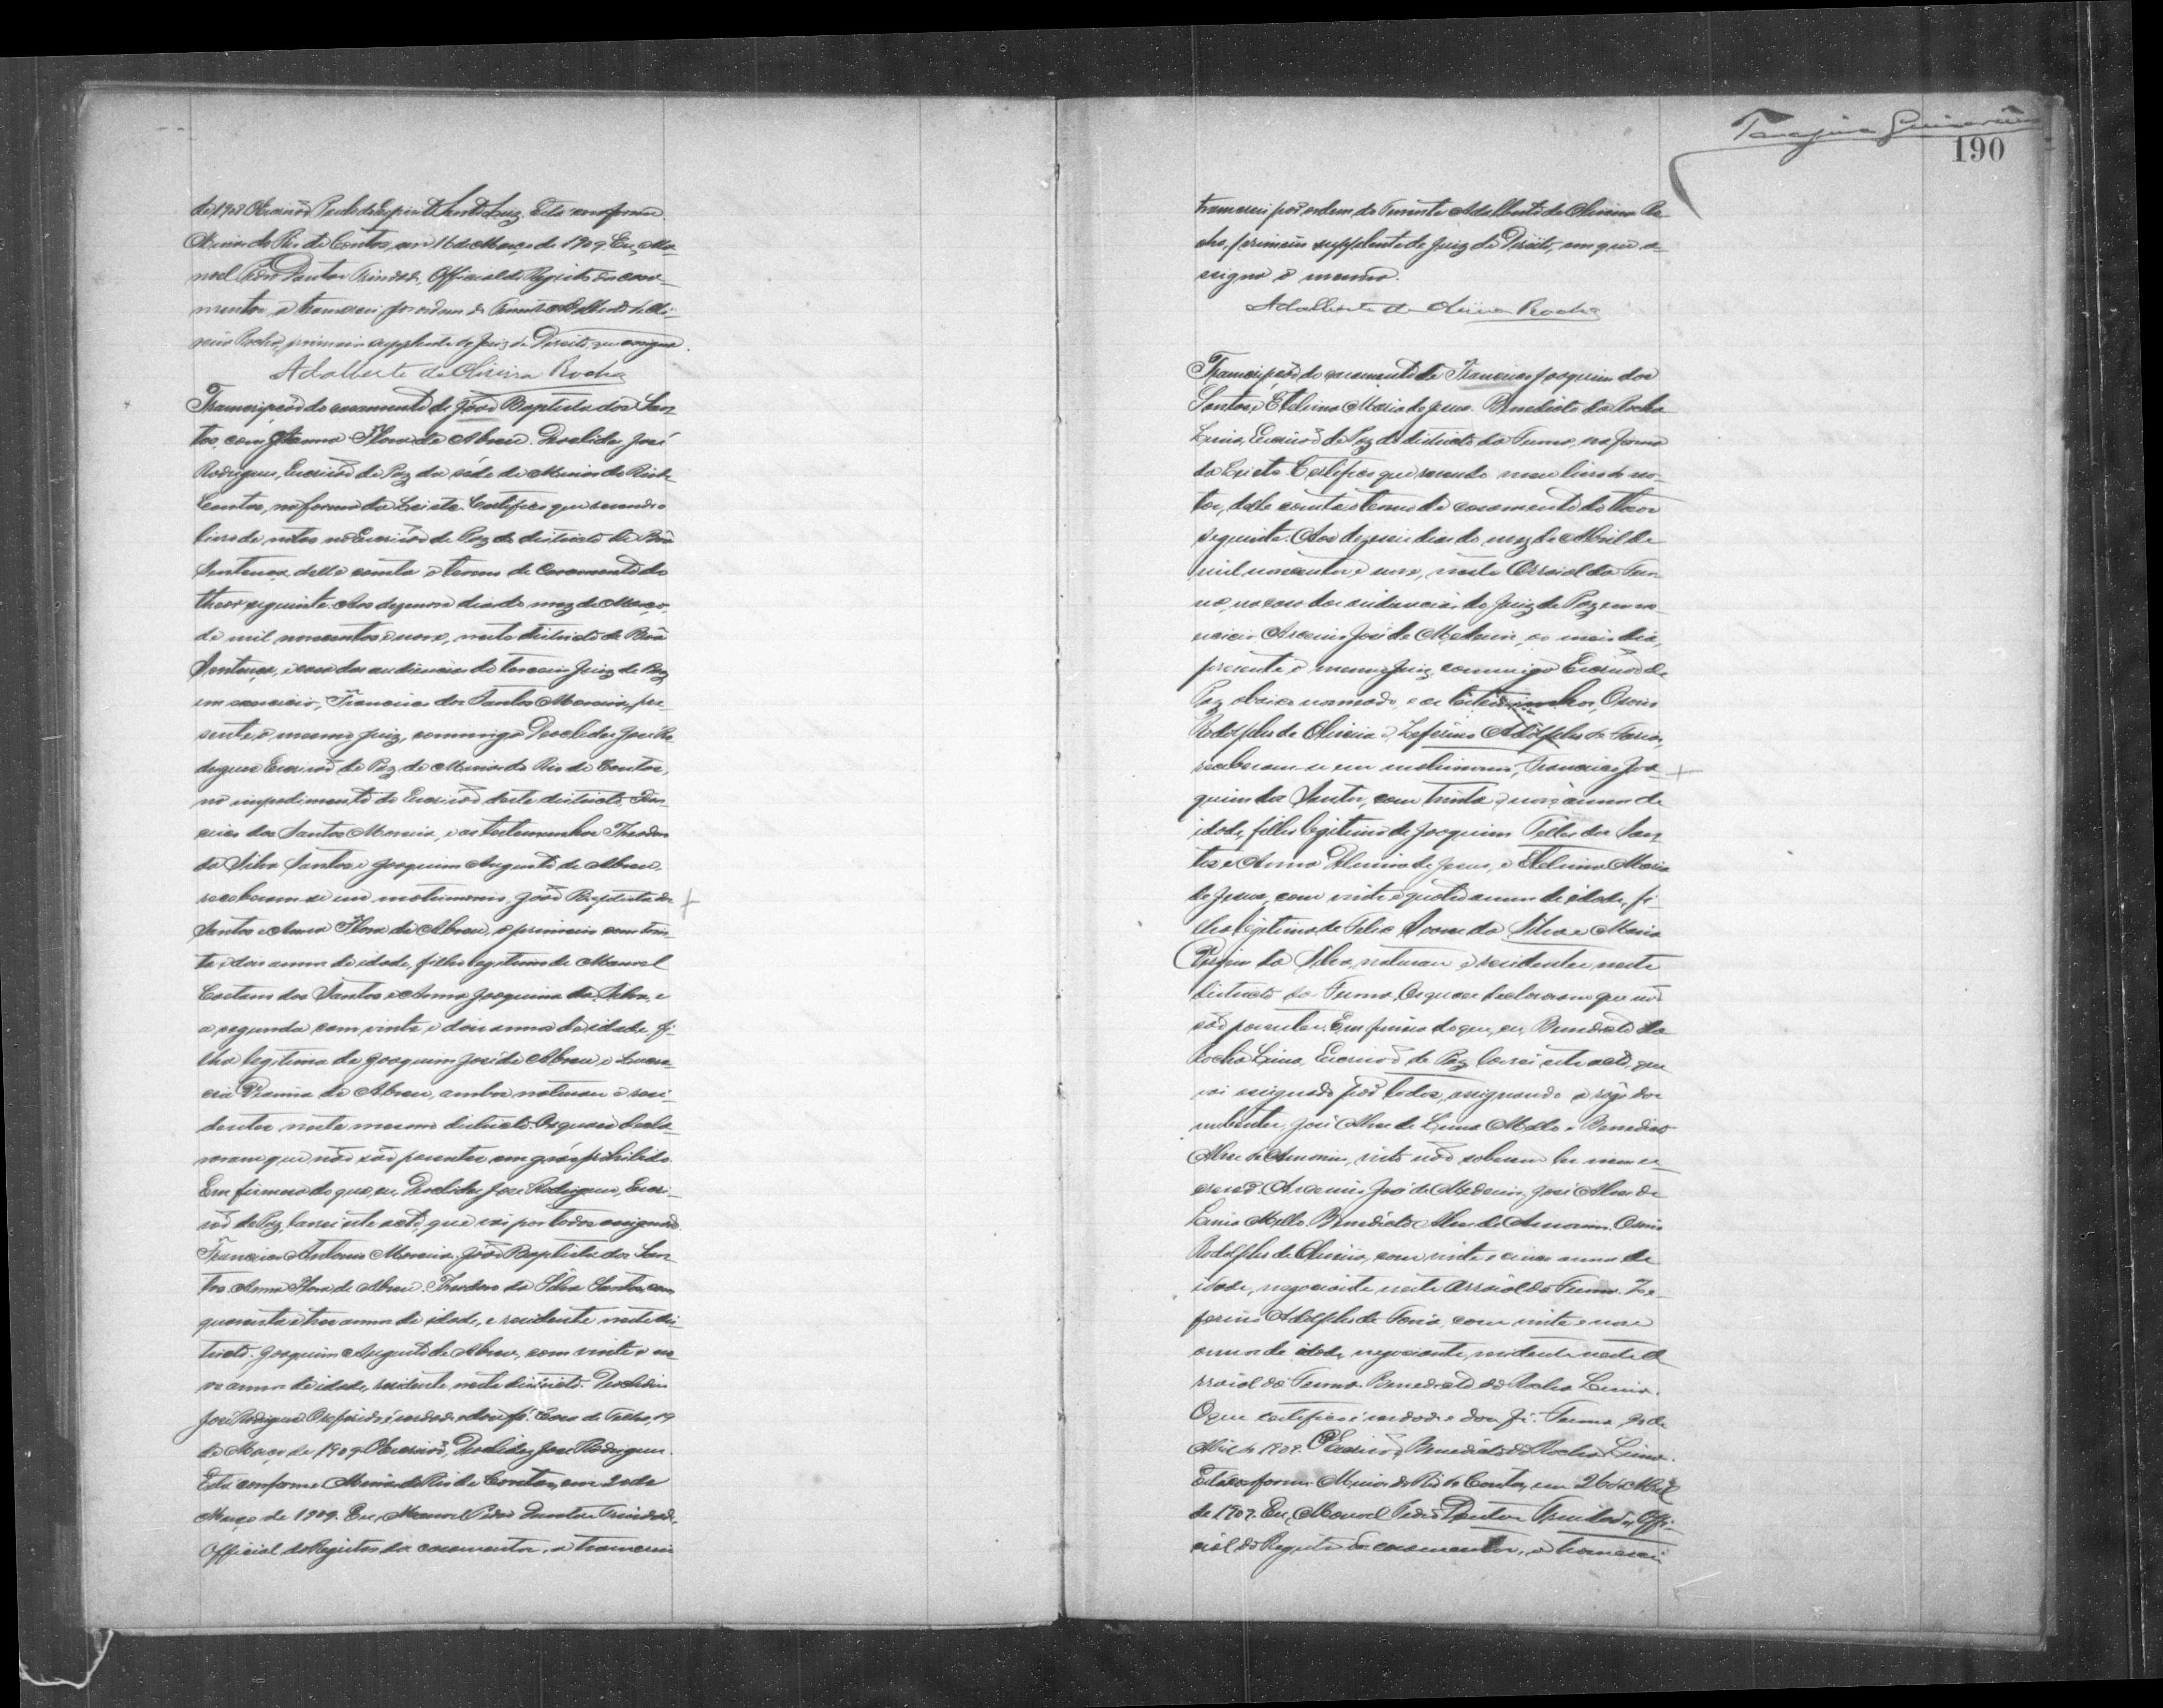 de 1909 O Escrivão Paulo do Espirito Santo Luz. Está conforme
Minas do Rio de Contas, em 16 de Março de 1909. Eu, Ma-
noel Pedro Dantas Trindade, Official do Registo de casa-
mentos, o transcrevi por ordem do Tenente Adalberto de Oli-
veira Rocha, primeiro supplente do Juiz de Direito, que assigna.
Adalberto de Oliveira Rocha
Transcripção do casamento de João Baptista dos San-
tos, com Anna Flora de Abreu. Deoclides José
Rodrigues, Escrivão de Paz da séde de Minas do Rio de
Contas, na forma da Lei etc. Certifico que revendo o
livro de notas do Escrivão de Paz do districto da Bôa
Sentença, delle consta o termo de casamento do
theor seguinte. Aos dezenove dias do mez de Março,
de mil novecentos e nove, neste districto da Bôa
Sentença, e casa das audiencias do terceiro Juiz de Paz
em exercicio, Francisco dos Santos Moreira, pre-
sente o mesmo Juiz, commigo Deoclides José Ro-
drigues Escrivão de Paz de Minas do Rio de Contas,
no impedimento do Escrivão deste districto, Fran-
cisco dos Santos Moreira, e as testemunhas Theodoro
da Silva Santos e Joaquim Augusto de Abreu,
receberam-se em matrimonio, João Baptista dos
Santos e Anna Flora de Abreu, o primeiro com trin-
ta e dois annos de idade, filho legitimo de Manoel
Caetano dos Santos e Anna Joaquina da Silva, e
a segunda com vinte e dois annos de idade, fi-
lha legitima de Joaquim José de Abreu e
de Abreu, ambos naturaes e resi-
dentes neste mesmo districto. Os quaes decla-
raram que não são parentes em gráo prohibido.
Em firmeza do que, eu, Deoclides José Rodrigues, Escri-
vão de Paz, lavrei este acto, que vai por todos assignado.
Francisco Antonio Moreira. João Baptista dos San-
tos. Anna Flora de Abreu. Theodoro da Silva Santos, com
quarenta e tres annos de idade, e residente neste dis-
tricto. Joaquim Augusto de Abreu, com vinte e no-
ve annos de idade, residente neste districto. Deoclides
José Rodrigues. O referido é verdade e dou fé. 19
de Março de 1909. O Escrivão, Deoclides José Rodrigues.
Está conforme. Minas do Rio de Contas, em 20 de
Março de 1909. Eu, Manoel Pedro Dantas Trindade,
Official do Registro de casamentos, o transcrevi
190
transcrevi por ordem do Tenente Adalberto de Oliveira Ro-
cha, primeiro supplente do Juiz de Direito, em que as-
signa o mesmo.
Adalberto de Oliveira Rocha
Transcripção do casamento de Francisco Joaquim dos
Santos e Etelvina Maria de Jesus. Benedicto da Rocha
Lima, Escrivão de Paz do districto da Furna, na forma
da Lei etc. Certifico que revendo meu livro de no-
tas, delle consta o termo de casamento do theor
seguinte. Aos dezeseis dias do mez de Abril de
mil novecentos e nove, neste Arraial da Fur-
na, na casa das audiencias do Juiz de Paz em ex-
ercicio Arsenio José de Medeiros, ao meio dia,
presente o mesmo Juiz, commigo Escrivão de
Paz abaixo nomeado, e as testemunhas, Osorio
Rodolpho de Oliveira e Zeferino Adolpho de Faria,
receberam-se em matrimonio, Francisco Joa-
quim dos Santos, com trinta e nove annos de
idade, filho legitimo de Joaquim Telles dos San-
tos e Anna de Jesus, e Etelvina Maria
de Jesus, com vinte e quatro annos de idade, fi-
lha legitima de Felix Soares da Silva e Maria
da Silva, naturaes e residentes neste
districto da Furna, Os quaes declararam que não
são parentes. Em firmeza do que, eu, Benedicto da
Rocha Lima, Escrivão de Paz, lavrei este acto, que
vai assignado por todos, assignando a rogo dos
nubentes, José Alves de Lima Mello e Benedicto
Alves de Amorim, visto não saberem ler nem es-
crever. Arsenio José de Medeiros. José Alves de
Lima Mello. Benedicto Alves de Amorim. Osorio
Rodolpho de Oliveira, com vinte e cinco annos de
idade, negociante neste Arraial da Furna. Ze-
ferino Adolpho de Faria, com vinte e nove
annos de idade, negociante, residente neste A-
rraial da Furna. Benedicto da Rocha Lima.
O que certifico é verdade e dou fé. Furna, de
Abril de 1909. O Escrivão, Benedicto da Rocha Lima.
Está conforme. Minas do Rio de Contas, em 26 de Abril
de 1909. Eu, Manoel Pedro Dantas Trindade, Offi-
cial do Registro de casamentos, o transcrevi